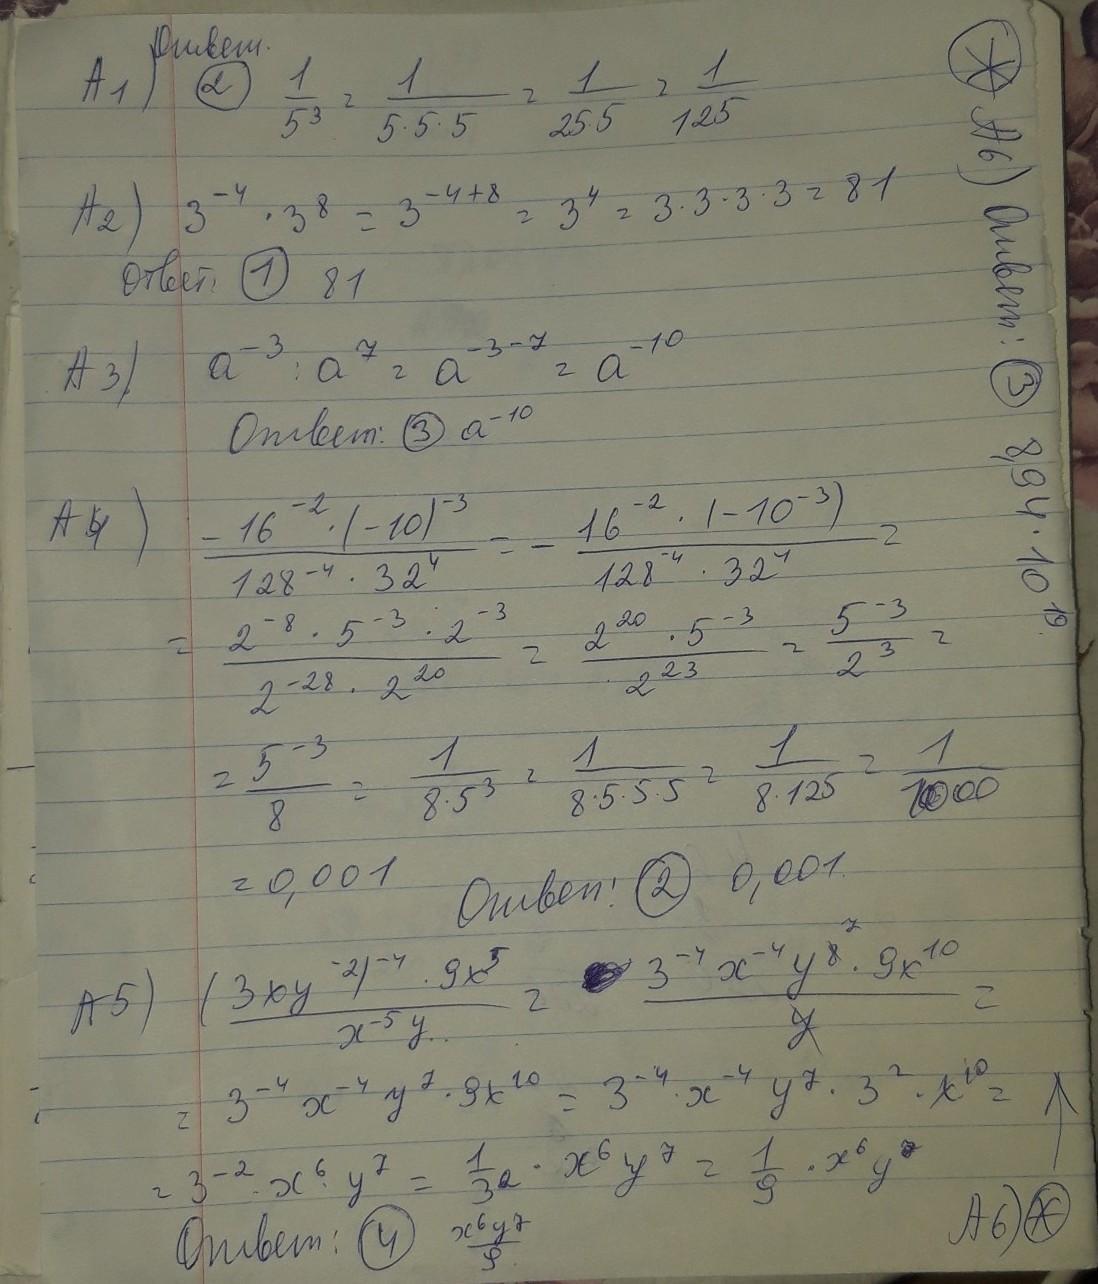 Ответ.
А1) ② 1/5³ = 1/(5·5·5) = 1/(25·5) = 1/125
А2) 3⁻⁴ · 3⁸ = 3⁻⁴⁺⁸ = 3⁴ = 3·3·3·3 = 81
Ответ: ① 81
А3) a⁻³ : a⁷ = a⁻³⁻⁷ = a⁻¹⁰
Ответ: ③ a⁻¹⁰
А4) (-16⁻² · (-10)⁻³)/(128⁻⁴ · 32⁴) = - (16⁻² · (-10⁻³))/(128⁻⁴ · 32⁴) =
= (2⁻⁸ · 5⁻³ · 2⁻³)/(2⁻²⁸ · 2²⁰) = (2²⁰ · 5⁻³)/2²³ = 5⁻³/2³ =
= 5⁻³/8 = 1/(8·5³) = 1/(8·5·5·5) = 1/(8·125) = 1/1000
= 0,001 Ответ: ② 0,001.
А5) ((3xy⁻²)⁻⁴ · 9x⁵)/(x⁻⁵y) = (3⁻⁴x⁻⁴y⁸ ⁷ · 9x¹⁰)/y =
= 3⁻⁴x⁻⁴y⁷ · 9x¹⁰ = 3⁻⁴ · x⁻⁴y⁷ · 3² · x¹⁰ =
= 3⁻² · x⁶ · y⁷ = 1/3² · x⁶y⁷ = 1/9 · x⁶y⁷
Ответ: ④ x⁶y⁷/9
А6) ⊛ ↑
⊛ А6) Ответ: ③ 8,94·10¹⁹.